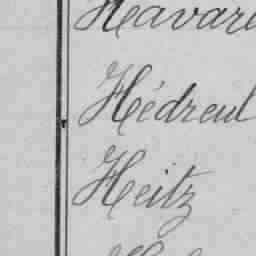 Havard
Hédreul
Heitz